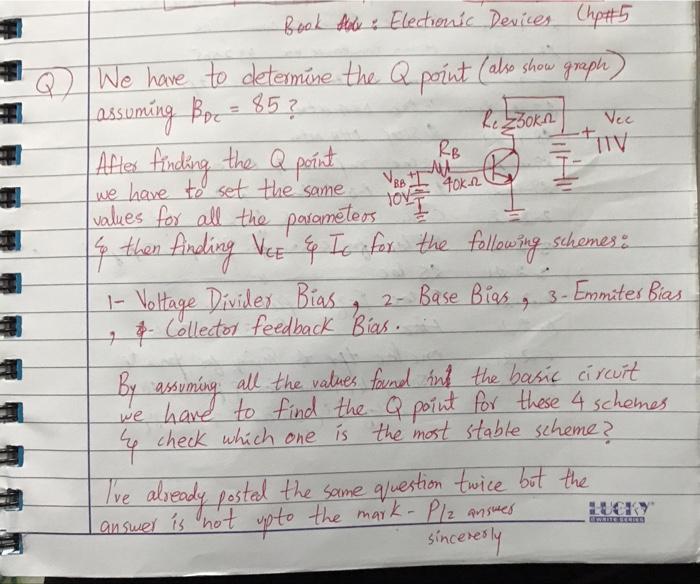 Book : Electronic Devices Chp#5
Q) We have to determine the Q point (also show graph)
assuming βDC = 85 ?
RC 30KΩ
VCC
+ 11V
-
RB
40K-Ω
VBB +
10V -
After finding the Q point
we have to set the same
values for all the parameters
& then finding VCE & IC for the following schemes:
1- Voltage Divider Bias, 2- Base Bias, 3- Emmiter Bias
, 4- Collector feedback Bias.
By assuming all the values found in the basic circuit
we have to find the Q point for these 4 schemes
& check which one is the most stable scheme?
I've already posted the same question twice but the
answer is not upto the mark - Plz answer
sincerely
LUCKY
WRITE SERIES